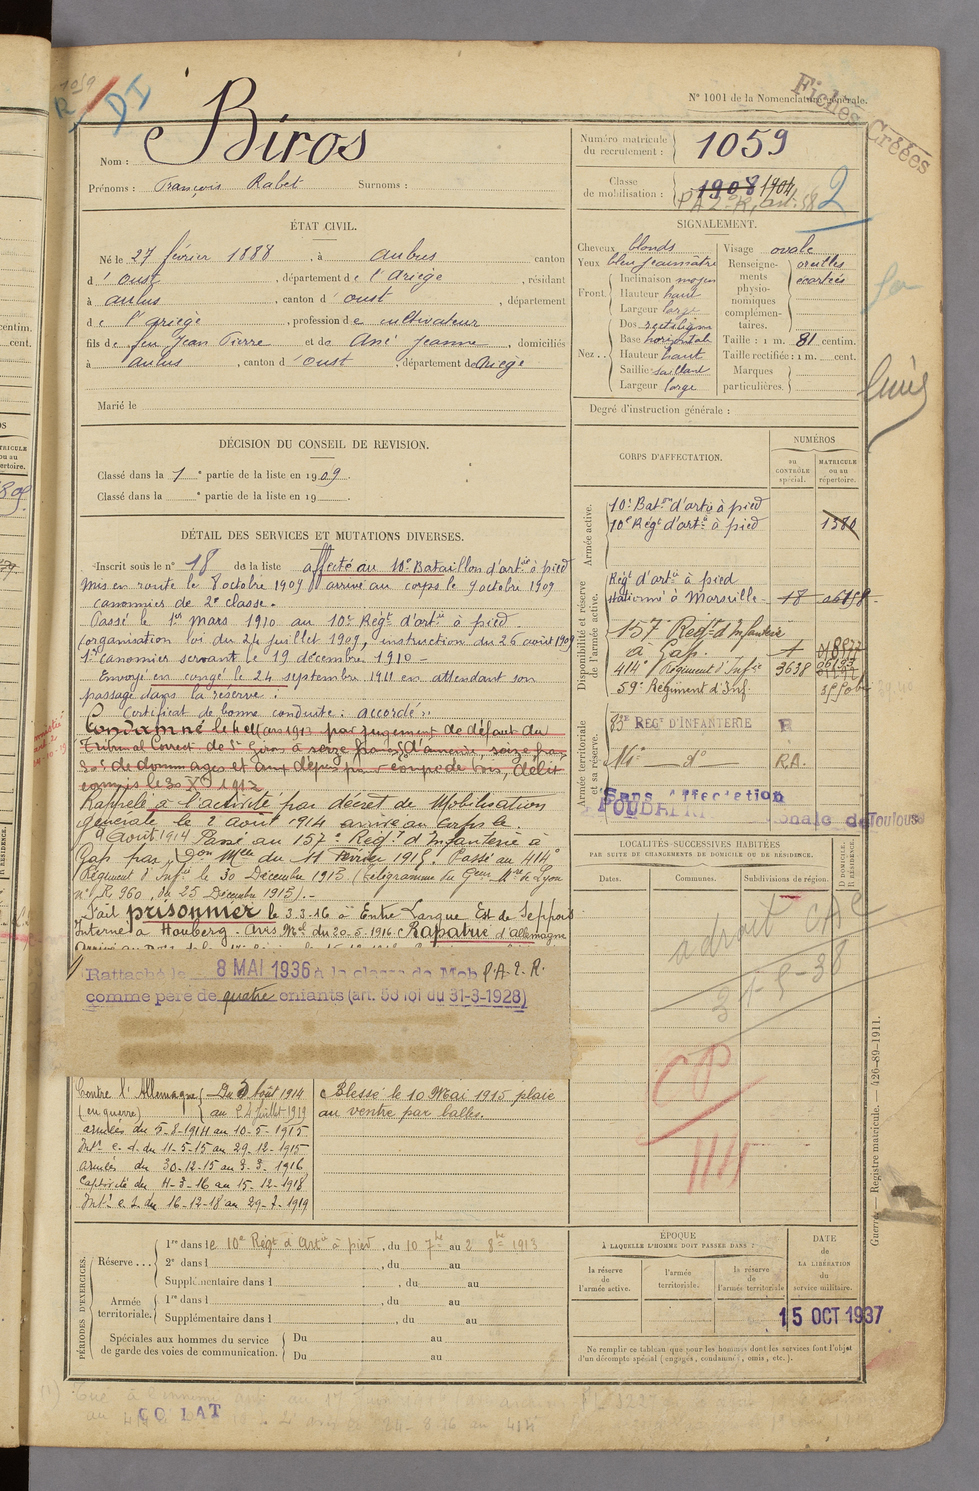 1059
R DI
N° 1001 de la Nomenclature générale.
Fiches Créées
Nom : Biros
Prénoms : François Rabet Surnoms :
Numéro matricule du recrutement : 1059
Classe de mobilisation : 1908 1904
2
ÉTAT CIVIL.
Né le 27 février 1888, à aulus canton
d'oust, département de l'Ariège, résidant
à aulus, canton d'oust, département
de l'ariège, profession de cultivateur
fils de feu Jean Pierre et de Ané Jeanne, domiciliés
à aulus, canton d'oust, département de Ariège
Marié le
SIGNALEMENT.
Cheveux blonds
Yeux bleu jaunâtre
Front. Inclinaison moyen
Hauteur haut
Largeur large
Nez.. Dos rectiligne
Base horizontale
Hauteur haut
Saillie saillant
Largeur large
Visage ovale
Renseignements physionomiques complémentaires. oreilles écartées
Taille : 1 m. 81 centim.
Taille rectifiée : 1 m. cent.
Marques particulières.
Degré d'instruction générale :
DÉCISION DU CONSEIL DE REVISION.
Classé dans la 1e partie de la liste en 1909.
Classé dans la e partie de la liste en 19
DÉTAIL DES SERVICES ET MUTATIONS DIVERSES.
Inscrit sous le n° 18 de la liste affecté au 10e Bataillon d'artie à pied
Mis en route le 8 octobre 1909 arrivé au corps le 9 octobre 1909
canonnier de 2e classe.
Passé le 1er mars 1910 au 10e Régt d'artie à pied.
(organisation loi du 24 juillet 1909, instruction du 26 août 1909)
1er canonnier servant le 19 décembre 1910 -
Envoyé en congé le 24 septembre 1911 en attendant son
passage dans la réserve.
Certificat de bonne conduite : accordé.
Condamné le 11 Mars 1913 par jugement de défaut du
Tribunal Correct. de St Girons à seize francs d'amende, seize francs
de dommages et aux dépens pour coupe de bois, délit
commis le 30 XII 1912
Rappelé à l'activité par décret de Mobilisation
générale le 2 août 1914 arrivé au corps le
Août 1914 Passé au 157e Régt d'Infanterie à
Gap par don Mlle du 11 Février 1915. Passé au 414e
Régiment d'Infie le 30 Décembre 1915 (télégramme du Gen. de Lyon
n° R 960, du 25 Décembre 1915).-
Fait prisonnier le 3.3.16 à Entre Largue Est de Seppois
Interné à Hauberg. Avis Mel du 20.5.1916. Rapatrié d'Allemagne
Rattaché le 8 MAI 1936 à la classe de Mob P.A.2.R.
comme père de quatre enfants (art. 58 loi du 31-3-1928)
Contre l'Allemagne (en guerre) Du 3 août 1914
au 24 Juillet 1919
armées du 5-8-1914 au 10-5-1915
Intr c. d. du 11-5-15 au 29-12-1915
armées du 30-12-15 au 3-3-1916
Captivité du 4-3-16 au 15-12-1918
Intr c. d. du 16-12-18 au 29-7-1919
Blessé le 10 Mai 1915 plaie
au ventre par balles.
CORPS D'AFFECTATION.
NUMÉROS
au CONTRÔLE spécial.
MATRICULE ou au répertoire.
Armée active.
10e Baton d'artie à pied
10e Régt d'artie à pied 1380
Disponibilité et réserve de l'armée active.
Régt d'artie à pied
stationné à Marseille 18
157 Régt d'Infanterie
à Gap. 1
414e Régiment d'Infie 3638
59e Régiment d'Inf.
Armée territoriale et sa réserve.
83e REGt D'INFANTERIE R
Mlle do R.A.
Sans Affectation
POUDRERIE Nationale de Toulouse
LOCALITÉS SUCCESSIVES HABITÉES
PAR SUITE DE CHANGEMENTS DE DOMICILE OU DE RÉSIDENCE.
Dates. Communes. Subdivisions de région. D DOMICILE. R RÉSIDENCE.
a droit CAC
CP
114
Guerre. — Registre matricule. — 426-89-1911.
PÉRIODES D'EXERCICES.
Réserve... 1re dans le 10e Régt d'Artie à pied, du 10 7bre au 2 8bre 1913
2e dans l , du au
Supplémentaire dans l , du au
Armée territoriale. 1re dans l , du au
Supplémentaire dans l , du au
Spéciales aux hommes du service de garde des voies de communication. Du au
Du au
ÉPOQUE
À LAQUELLE L'HOMME DOIT PASSER DANS :
la réserve de l'armée active.
l'armée territoriale.
la réserve de l'armée territoriale
DATE de LA LIBÉRATION du service militaire.
15 OCT 1937
Ne remplir ce tableau que pour les hommes dont les services font l'objet
d'un décompte spécial (engagés, condamnés, omis, etc.).